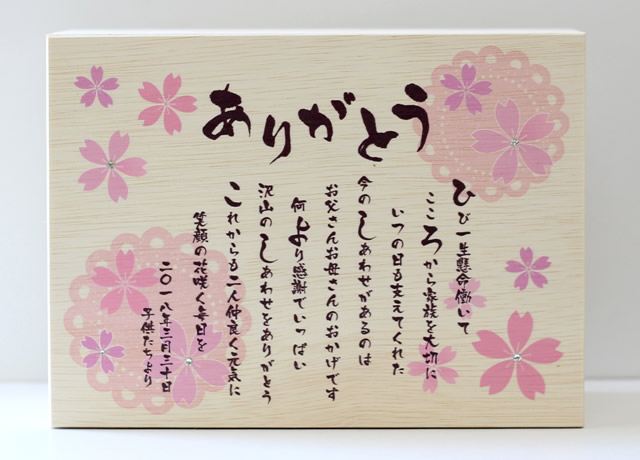 ありがとう
ひび一生懸命働いて
こころから家族を大切に
いつの日も支えてくれた
今のしあわせがあるのは
お父さんお母さんのおかげです
何より感謝でいっぱい
沢山のしあわせをありがとう
これからも二人仲良く元気に
笑顔の花咲く毎日を
二〇一八年三月三十日
子供たちより